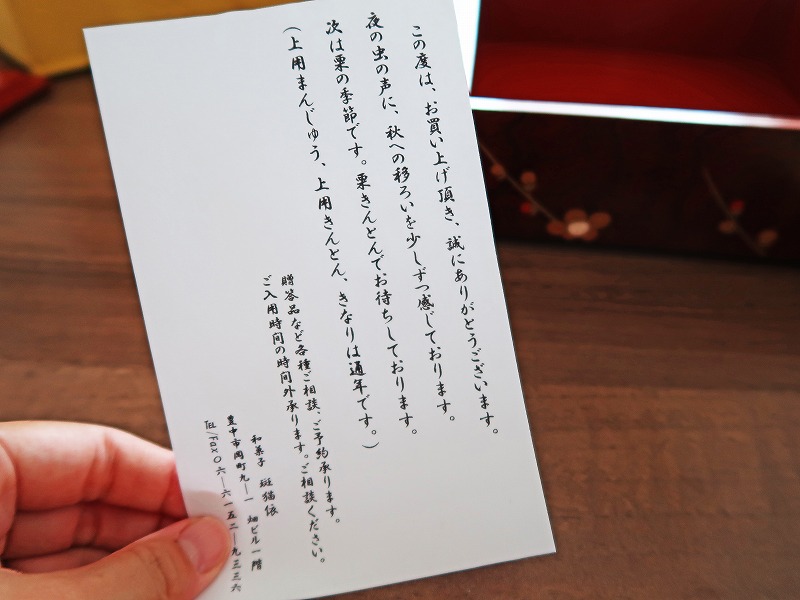 この度は、お買い上げ頂き、誠にありがとうございます。
夜の虫の声に、秋への移ろいを少しずつ感じております。
次は栗の季節です。栗きんとんでお待ちしております。
(上用まんじゅう、上用きんとん、きなりは通年です。)
贈答品など各種ご相談、ご予約承ります。
ご入用時間の時間外承ります。ご相談ください。
和菓子 斑猫依
豊中市岡町九ー一 畑ビル一階
Tel/Fax〇六ー六一五二ー九三三六